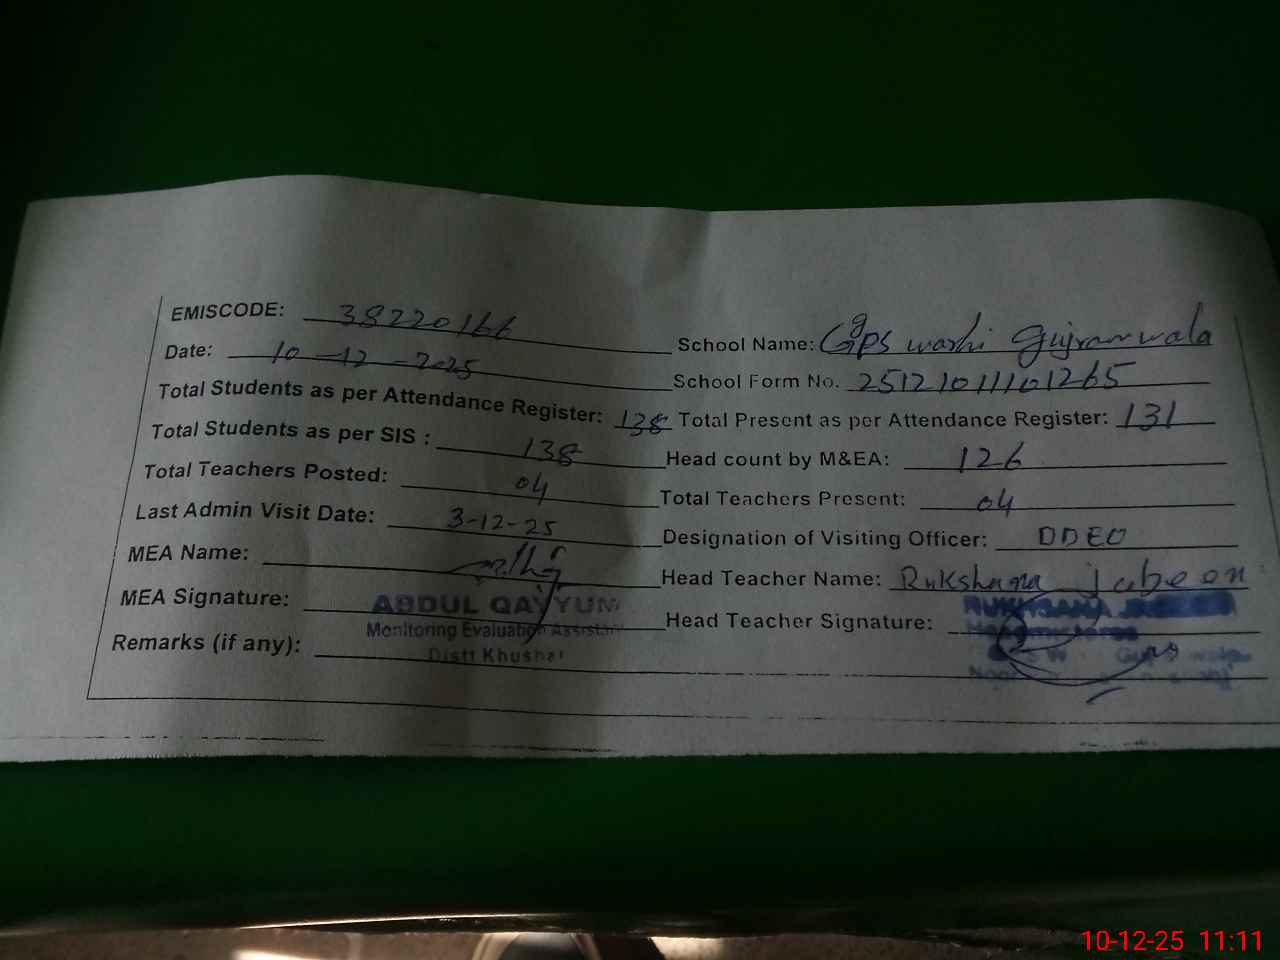 EMISCODE: 38220166
School Name: GGPS warhi Gujranwala
Date: 10-12-2025
School Form No. 25121011101265
Total Students as per Attendance Register: 138 Total Present as per Attendance Register: 131
Total Students as per SIS : 138
Head count by M&EA: 126
Total Teachers Posted: 04
Total Teachers Present: 04
Last Admin Visit Date: 3-12-25
Designation of Visiting Officer: DDEO
MEA Name:
Head Teacher Name: Rukshana Jabeen
MEA Signature: ABDUL QAYYUM
Head Teacher Signature:
Monitoring Evaluation Assistant
Distt Khushab
Remarks (if any):
10-12-25 11:11